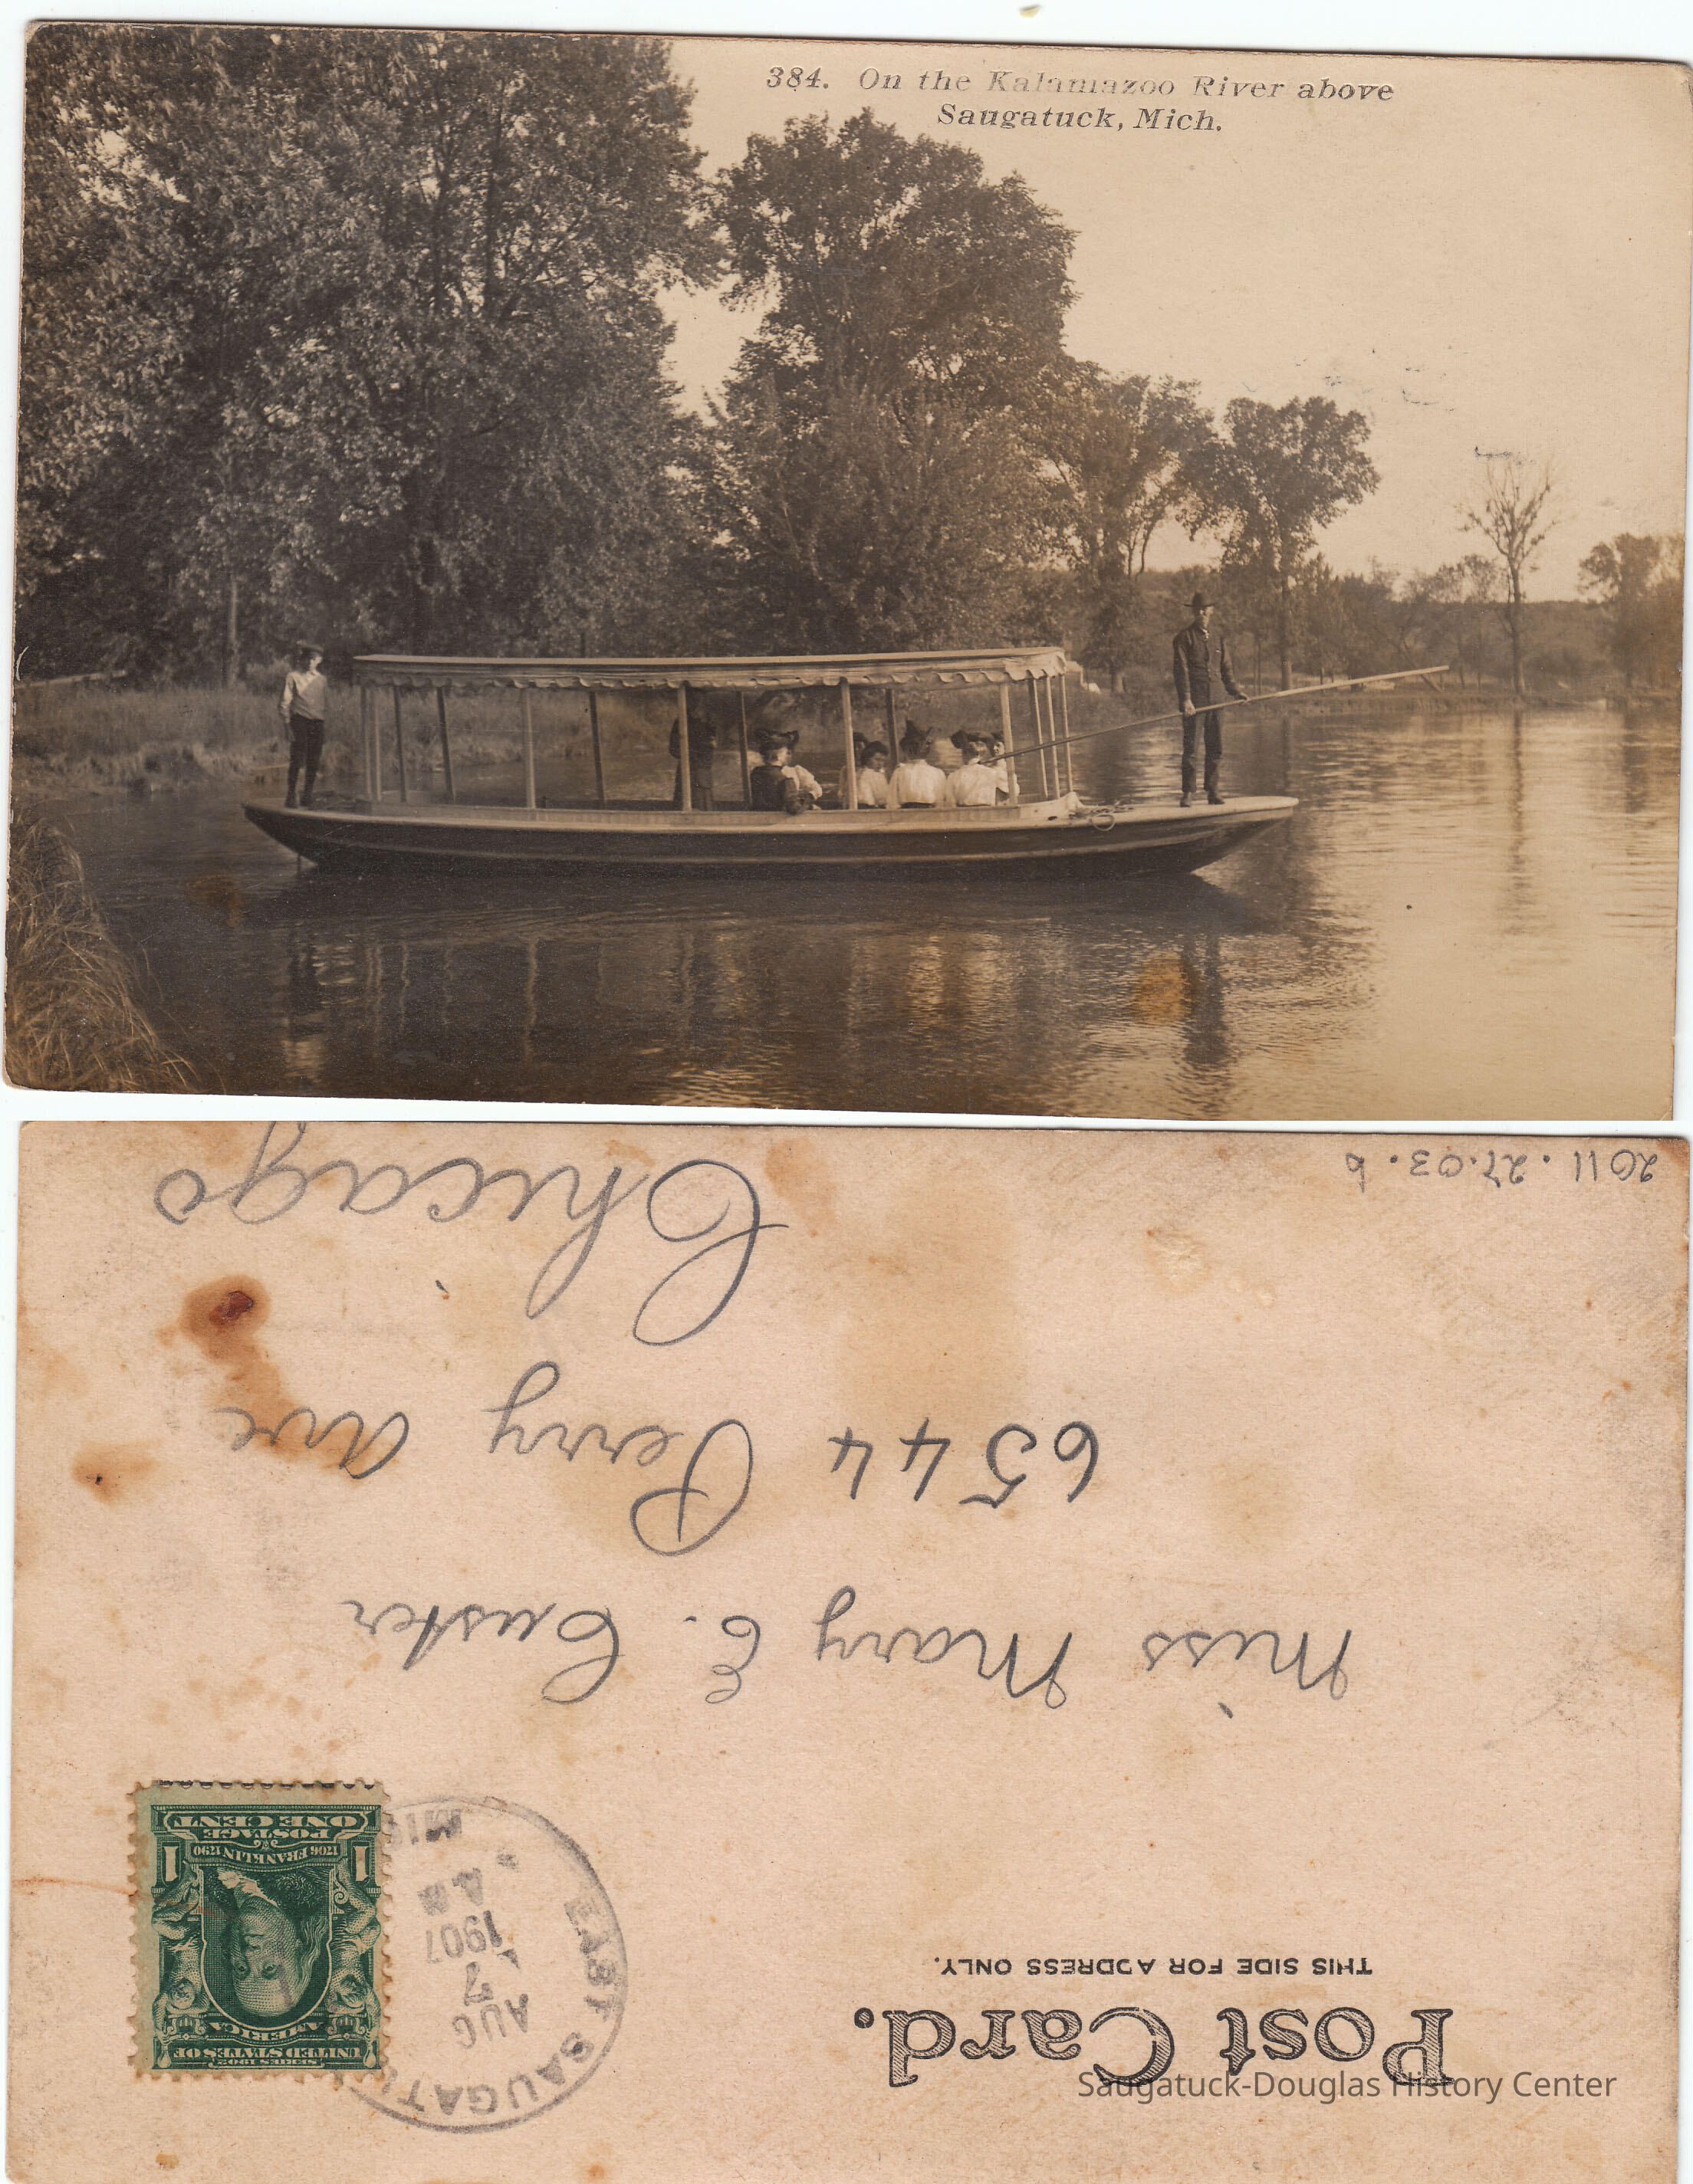 384. On the Kalamazoo River above
Saugatuck, Mich.
Post Card.
THIS SIDE FOR ADDRESS ONLY.
EAST SAUGAT
MI
AUG
7
1907
SERIES 1902
UNITED STATES OF
AMERICA
1706 FRANKLIN 1790
1 1
POSTAGE
ONE CENT
Miss Mary E. Custer
6544 Perry Ave
Chicago
2011.27.03.b
Saugatuck-Douglas History Center